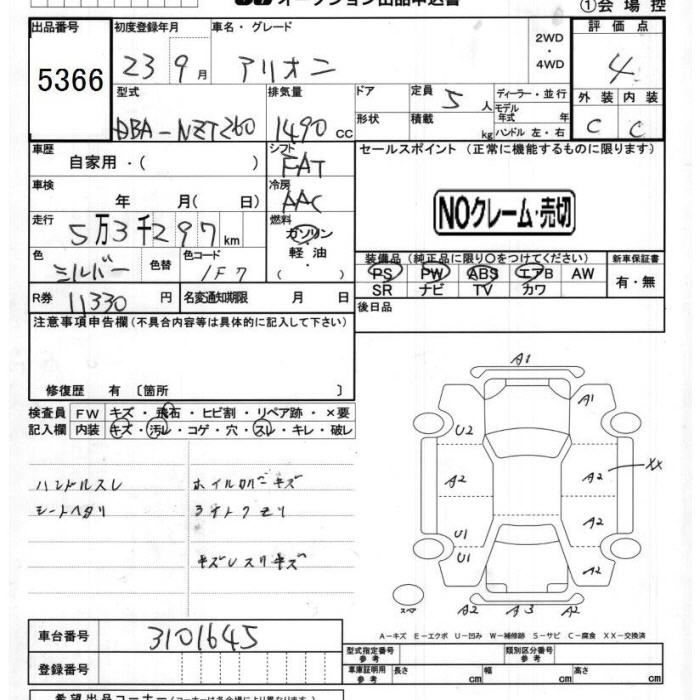 オークション出品申込書
①会場控
出品番号 初度登録年月 車名・グレード 2WD・4WD 評価点
5366 23 9月 アリオン 4
型式 排気量 ドア 定員 5人 ディーラー・並行 外装 内装
DBA-NZT260 1490cc 形状 積載 kg モデル年式 年 ハンドル 左・右 C C
車歴 自家用・( ) シフト FAT セールスポイント (正常に機能するものに限ります)
車検 年 月( 日) 冷房 AAC
NOクレーム・売切
走行 5万3千297km 燃料 ガソリン・軽油・( )
色 シルバー 色替 色コード 1F7
装備品(純正品に限り○をつけてください) 新車保証書
PS PW ABS エアB AW 有・無
SR ナビ TV カワ
R券 11330円 名変通知期限 月 日
後日品
注意事項申告欄(不具合内容等は具体的に記入して下さい)
修復歴 有 〔箇所 〕
検査員記入欄 FW キズ・飛石・ヒビ割・リペア跡・×要
内装 キズ・汚レ・コゲ・穴・スレ・キレ・破レ
ハンドルスレ ホイルカバーキズ
シートヘタリ
キズレスリキズ
A1
A1
U2
A2 A2 XX
A2
U1
U1 A2
スペア A2 A3 A2
A-キズ E-エクボ U-凹み W-補修跡 S-サビ C-腐食 XX-交換済
車台番号 3101645
型式指定番号 参考 類別区分番号 参考
登録番号 車庫証明用 参考 長さ cm 幅 cm 高さ cm
希望出品コーナー